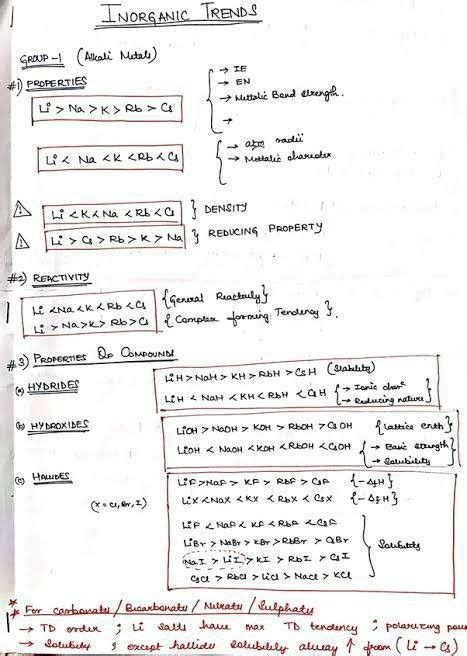 INORGANIC TRENDS
GROUP-1 (Alkali Metals)
#1) PROPERTIES
Li > Na > K > Rb > Cs
→ IE
→ EN
→ Mettalic Bond strength.
→
Li < Na < K < Rb < Cs
→ atm radii
→ Mettalic character
⚠ Li < K < Na < Rb < Cs } DENSITY
⚠ Li > Cs > Rb > K > Na } REDUCING PROPERTY
#2) REACTIVITY
Li < Na < K < Rb < Cs {General Reactivity}
Li > Na > K > Rb > Cs {Complex forming Tendency}.
#3) PROPERTIES OF COMPOUNDS
(a) HYDRIDES
LiH > NaH > KH > RbH > CsH (Stability)
LiH < NaH < KH < RbH < CsH {→ Ionic charc
→ Reducing nature}
(b) HYDROXIDES
LiOH > NaOH > KOH > RbOH > CsOH {lattice enth}
LiOH < NaOH < KOH < RbOH < CsOH {→ Basic strength
→ Solubility
(c) HALIDES
LiF > NaF > KF > RbF > CsF {-ΔfH}
(X = Cl, Br, I) LiX < NaX < KX < RbX < CsX {-ΔfH}
LiF < NaF < KF < RbF < CsF
LiBr > NaBr > KBr > RbBr > CsBr
NaI > LiI > KI > RbI > CsI
CsCl > RbCl > LiCl > NaCl > KCl
} Solubility
* For carbonates / Bicarbonate / Nitrate / Sulphate
→ TD order ; Li salts have max TD tendency ; polarizing pow
→ Solubility ; except hallides solubility alway ↑ from (Li → Cs)